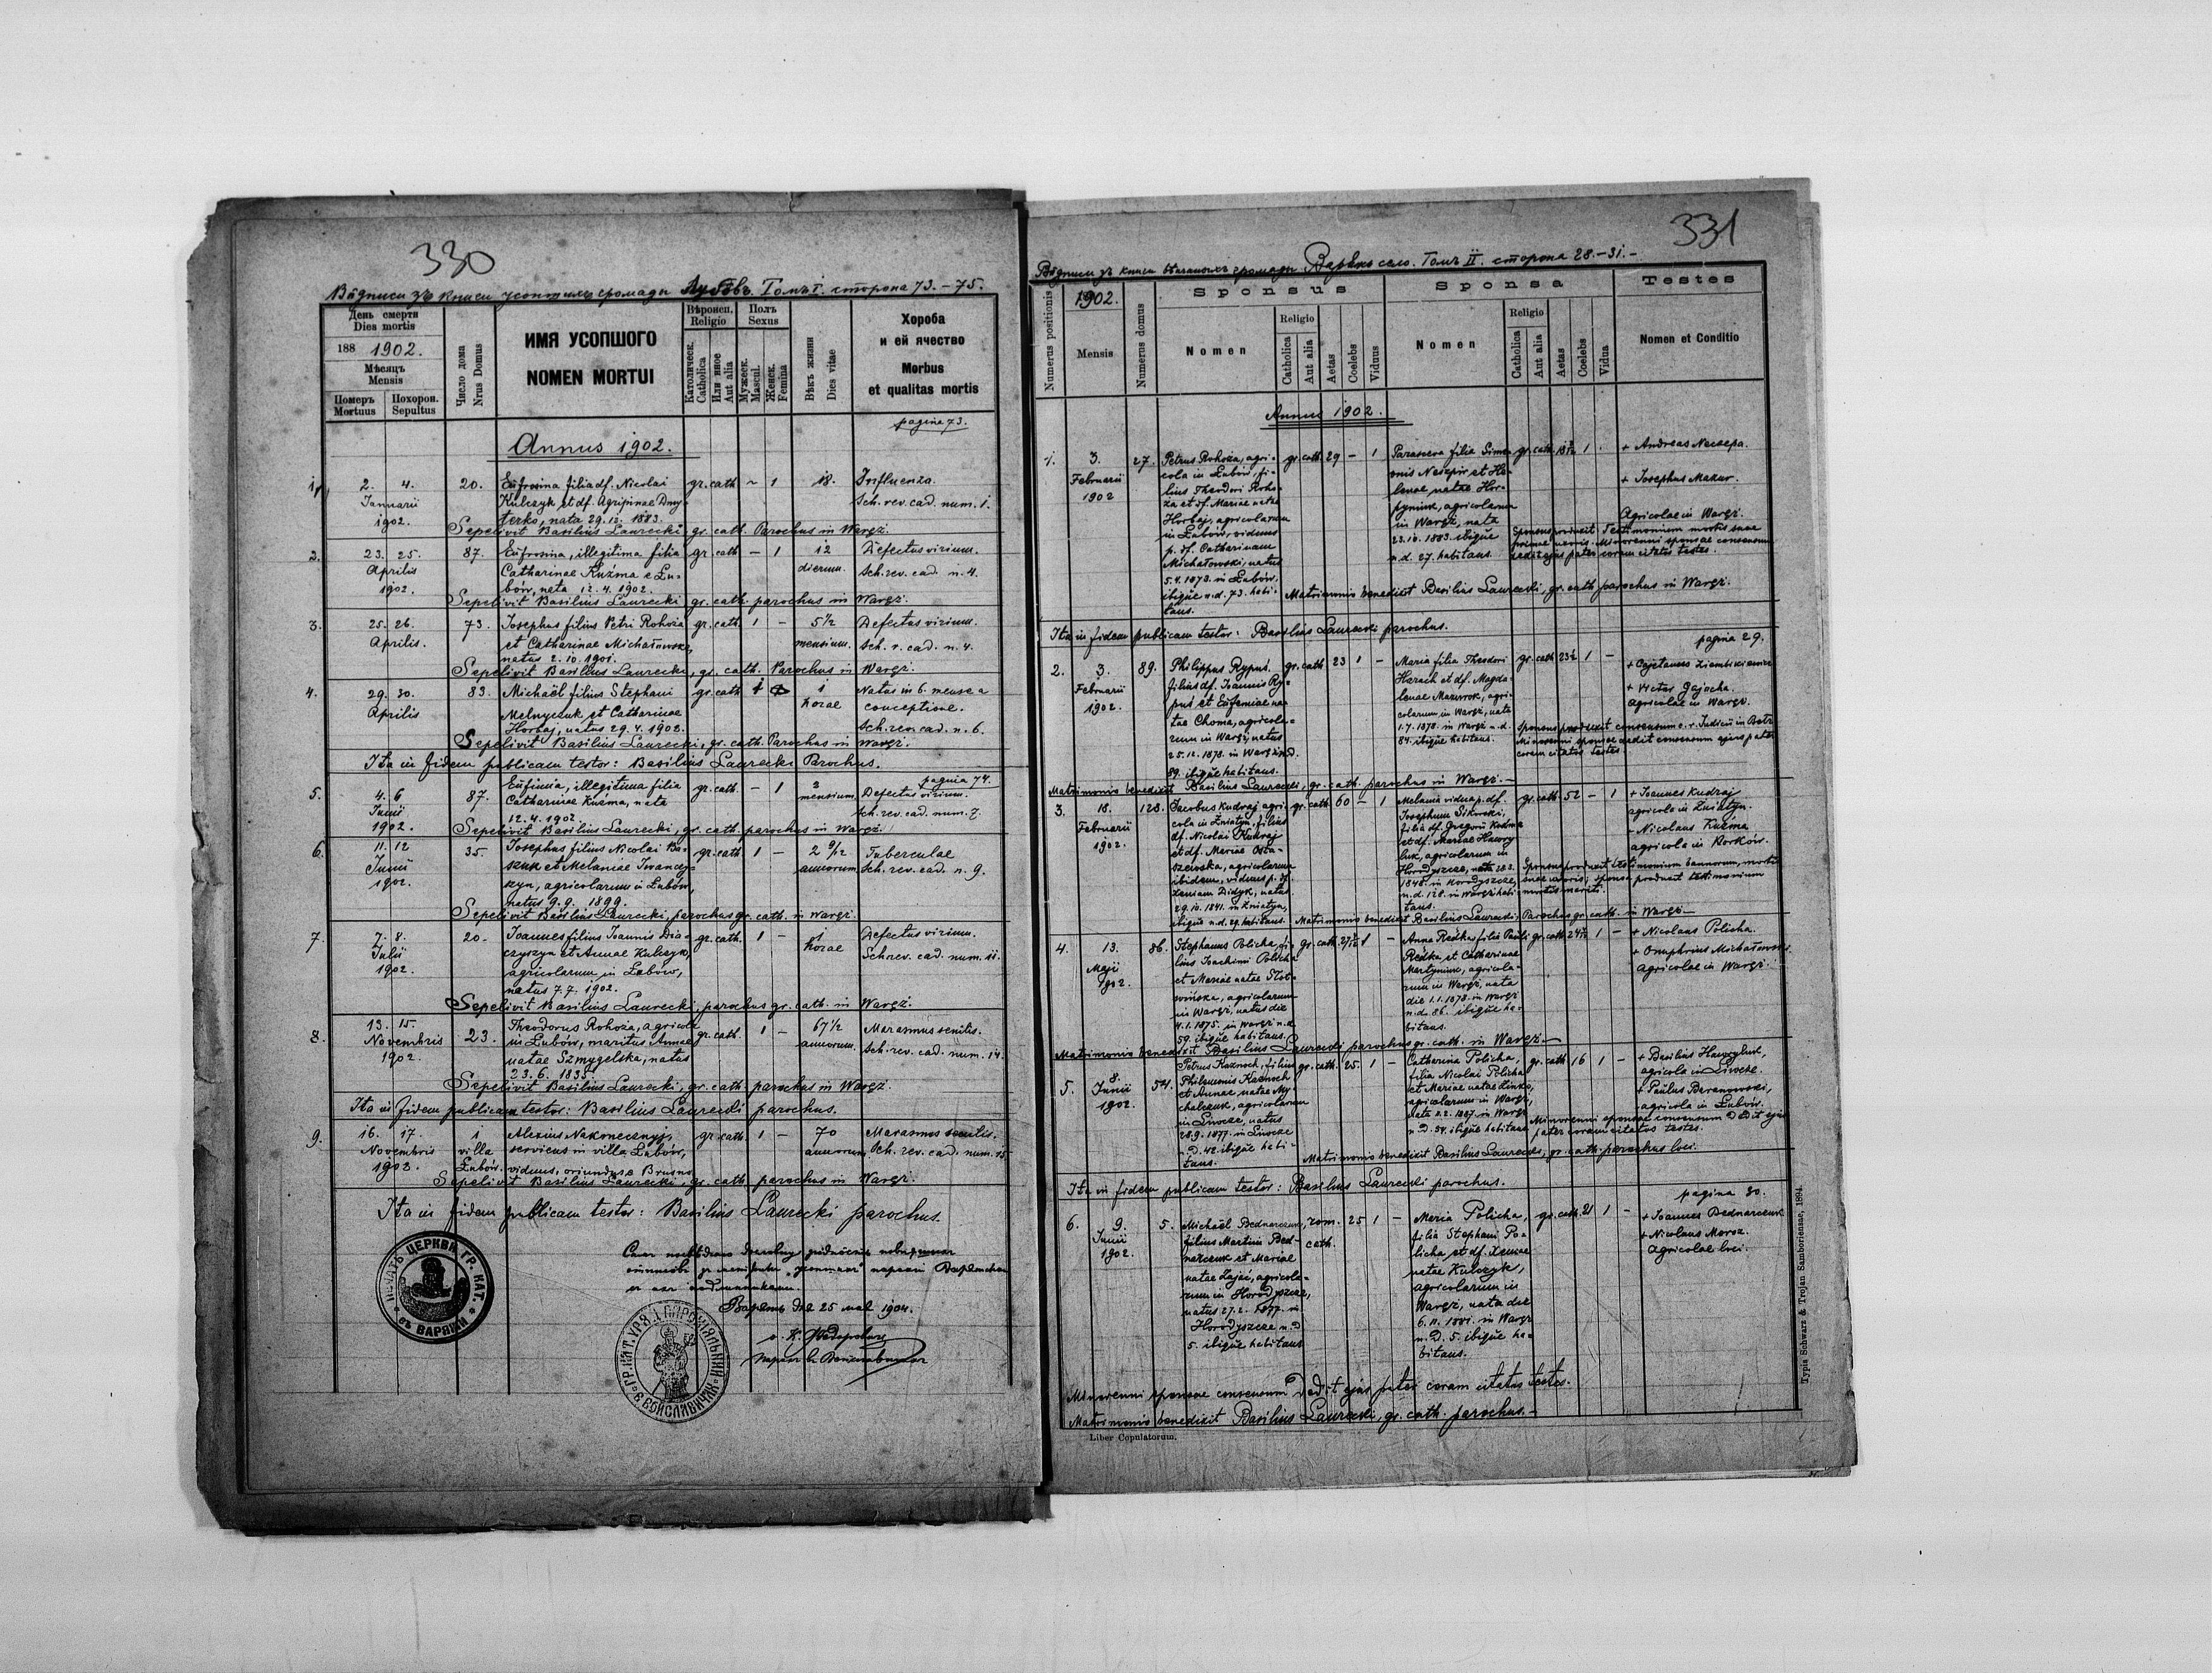 330
Вôдписи зъ книги усопшихъ громады Лубôвъ. Томъ I. сторона 73.-75.
День смерти
Dies mortis
188 1902.
Мѣсяцъ
Mensis
Померъ
Mortuus
Похорон.
Sepultus
Число дома
Nrus Domus
ИМЯ УСОПШОГО
NOMEN MORTUI
Вѣроисп.
Religio
Католическ.
Catholica
Или иное
Aut alia
Полъ
Sexus
Мужеск.
Mascul.
Женск.
Femina
Вѣкъ жизни
Dies vitae
Хороба
и ей ячество
Morbus
et qualitas mortis
pagina 73.
Annus 1902.
1. 2. 4. 20. Eufrosina filia df. Nicolai gr. cath ~ 1 18. Influenza.
Januarii Kulczyk et df. Agripinae Dmy- Sch. rev. cad. num. 1.
1902. terko, nata 29. 12. 1883.
Sepelivit Basilius Laurecki gr. cath. Parochus in Waręż.
2. 23. 25. 87. Eufrosina, illegitima filia gr. cath - 1 12 Defectus virium.
Aprilis Catharinae Kuźma e Łu- dierum. Sch. rev. cad. n. 4.
1902. bów, nata 12. 4. 1902.
Sepelivit Basilius Laurecki gr. cath. parochus in Waręż.
3. 25. 26. 73. Josephus filius Petri Rohoza gr. cath. 1 - 5½ Defectus virium.
Aprilis. et Catharinae Michałowska, mensium. Sch. r. cad. n. 4.
natus 2. 10. 1901.
Sepelivit Basilius Laurecki, gr. cath. Parochus in Waręż.
4. 29. 30. 83. Michaël filius Stephani gr. cath 1 1 Natus in 6. mense a
Aprilis Melnyczuk et Catharinae horae conceptione.
Horbaj, natus 29. 4. 1902. Sch. rev. cad. n. 6.
Sepelivit Basilius Laurecki, gr. cath. Parochus in Waręż.
Ita in fidem publicam testor: Basilius Laurecki Parochus.
pagina 74.
5. 4. 6 87. Eufimia, illegitima filia gr. cath. - 1 2 Defectus virium.
Junii Catharinae Kuźma, nata mensium, Sch. rev. cad. num. 7.
1902. 12. 4. 1902.
Sepelivit Basilius Laurecki, gr. cath. parochus in Waręż.
6. 11. 12 35. Josephus filius Nicolai Ba- gr. cath. 1 - 2 9/12 Tuberculae
Junii szuk et Melaniae Iwancy- annorum Sch. rev. cad. n. 9.
1902. szyn, agricolarum in Łubów,
natus 9. 9. 1899.
Sepelivit Basilius Laurecki, parochus gr. cath. in Waręż.
7. 7. 8. 20. Joannes filius Joannis Dia- gr. cath. 1 - 1 Defectus virium.
Julii czyszyn et Annae Kulczyk, horae Sch. rev. cad. num. 11.
1902. agricolarum in Łubów,
natus 7. 7. 1902.
Sepelivit Basilius Laurecki, parochus gr. cath. in Waręż.
8. 13. 15. 23. Theodorus Rohoża, agricola gr. cath. 1 - 67½ Marasmus senilis.
Novembris in Łubów, maritus Annae annorum. Sch. rev. cad. num. 14.
1902. natae Szmygelska, natus
23. 6. 1835.
Sepelivit Basilius Laurecki, gr. cath. parochus in Waręż.
Ita in fidem publicam testor: Basilius Laurecki parochus.
9. 16. 17. 1 Alexius Nakonecznyj, gr. cath. 1 - 70 Marasmus senilis.
Novembris villa serviens in villa Łubów, annorum Sch. rev. cad. num. 15
1902. Łubów. viduus, oriundus e Brusno
Sepelivit Basilius Laurecki, gr. cath. parochus in Waręż.
Ita in fidem publicam testor: Basilius Laurecki parochus.
ПЕЧАТЬ ЦЕРКВИ ГР. КАТ. въ ВАРЯЖИ
Варяжъ дня 25 мая 1904.
ГР. КАТ. УРЯД ПАРОХІЯЛЬНИЙ В ВОЙСЛАВИЧАХ
331
Вôдписи зъ книги вѣнчаныхъ громады Варяжъ село. Томъ II. сторона 28.-31.-
Numerus positionis
1902.
Mensis
Numerus domus
Sponsus
Nomen
Religio
Catholica
Aut alia
Aetas
Coelebs
Viduus
Sponsa
Nomen
Religio
Catholica
Aut alia
Aetas
Coelebs
Vidua
Testes
Nomen et Conditio
Annus 1902.
1. 3. 27. Petrus Rohoża, agri- gr. cath. 29 - 1 Parasceva filia Sime- gr. cath. 1 + Andreas
Februarii cola in Łubów, fi- onis et He- + Josephus Mazur.
1902 lius Theodori Roho- lenae natae Hor-
za et df. Mariae natae agricolarum Agricolae in Waręż.
Horbaj, agricolarum in Waręż, nata
in Łubów, viduus 23. 10. 1883. ibique
p. df. Catharinam n. d. 27. habitans.
Michałowski, natus
5. 4. 1873. in Łubów,
ibique n. d. 73. habi-
tans.
Sponsus produxit Testimonium mortis suae
primae uxoris. Minorenni sponsae consensum
dedit ejus pater coram citatis testes.
Matrimonio benedixit Basilius Laurecki, gr. cath parochus in Waręż.
Ita in fidem publicam testor: Basilius Laurecki parochus.
pagina 29.
2. 3. 89. Philippus Rypuś, gr. cath 23 1 - Maria filia Theodori gr. cath 23½ 1 -
Februarii filius df. Joannis Ry- Harach et df. Magda- + Victor Gajocha.
1902. puś et Eufemiae na- lenae Mazurok, agri- agricolae in Waręż.
tae Choma, agricola- colarum in Waręż, nata
rum in Waręż, natus 1. 7. 1878. in Waręż n. d.
25. 12. 1878. in Waręż n. d. 84. ibique habitans.
89. ibique habitans.
Minorenni sponsae dedit consensum ejus pater
coram citatis testes.
Matrimonio benedixit Basilius Laurecki, gr. cath. parochus in Waręż.-
3. 18. 128. Jacobus Kudraj agri- gr. cath. 60 - 1 Melania vidua p. df. gr. cath. 52 - 1 + Joannes Kudraj
Februarii cola in Żniatyn, filius Josephum Sikorski, agricola in Żniatyn.
1902. df. Nicolai Kudraj filia df. Gregorii + Nicolaus Kuźma
et df. Mariae Osta- et df. Mariae agricola in Korków.
szewska, agricolarum agricolarum in
ibidem, viduus p. df. Horodyszcze,
Xeniam Didyk, natus 1848. in Horodyszcze,
29. 10. 1841. in Żniatyn, n. d. 128. in Waręż habi-
ibique n. d. 29. habitans. tans.
Sponsus produxit testimonium bannorum, mortis
suae uxoris; sponsa produxit testimonium
mortis mariti.
Matrimonio benedixit Basilius Laurecki, Parochus gr. cath. in Waręż.-
4. 13. 86. Stephanus Policha, fi- gr. cath. 1 - Anna Rećka, filia Pauli gr. cath. 1 - + Nicolaus Policha
Maji lius Joachimi Policha Rećka, et Catharinae + Onuphrius Michałowski.
1902. et Mariae natae Słot- Martyniuk, agricola- Agricolae in Waręż.
wińska, agricolarum rum in Waręż, nata
in Waręż, natus die die 1. 1. 1878. in Waręż
4. 1. 1875. in Waręż n. d. n. d. 86. ibique ha-
59. ibique habitans. bitans.
Matrimonio benedixit Basilius Laurecki parochus gr. cath. in Waręż.-
5. 8. 54. Petrus Kaznoch, filius gr. cath. 25. 1 - Catharina Policha, gr. cath 16 1 - + Basilius Hawryluk,
Junii Philemonis Kaznoch filia Nicolai Policha agricola in Liwcze.
1902. et Annae natae My- et Mariae natae + Paulus Baranowski,
chalczuk, agricolarum agricolarum in Waręż, agricola in Łubów.
in Liwcze, natus nata 2. 2. 1887. in Waręż
28. 9. 1877. in Liwcze n. D. 54. ibique habitans
n. D. 42. ibique habi-
tans.
Minorenni sponsae consensum Dedit ejus
pater coram citatos testes.
Matrimonio benedixit Basilius Laurecki, gr. cath. parochus loci.
Ita in fidem publicam testor: Basilius Laurecki parochus.
pagina 30.
6. 9. 5. Michaël Bednarczuk, rom. 25 1 - Maria Policha, gr. cath. 21 1 - + Joannes Bednarczuk
Junii filius Martini Bed- cath. filia Stephani Po- + Nicolaus Moroz.
1902. narczuk et Mariae licha et df. Xeniae Agricolae loci.
natae Zając, agricola- natae Kulczyk,
rum in Horodyszcze, agricolarum in
natus 27. 2. 1877. in Waręż, nata die
Horodyszcze n. D 6. 11. 1881. in Waręż
5. ibique habitans n. D. 5. ibique ha-
bitans.
Minorenni sponsae consensum Dedit ejus pater coram citatos testes.
Matrimonio benedixit Basilius Laurecki, gr. cath. parochus.-
Liber Copulatorum.
Typis Schwarz & Trojan Samboriensae, 1894.